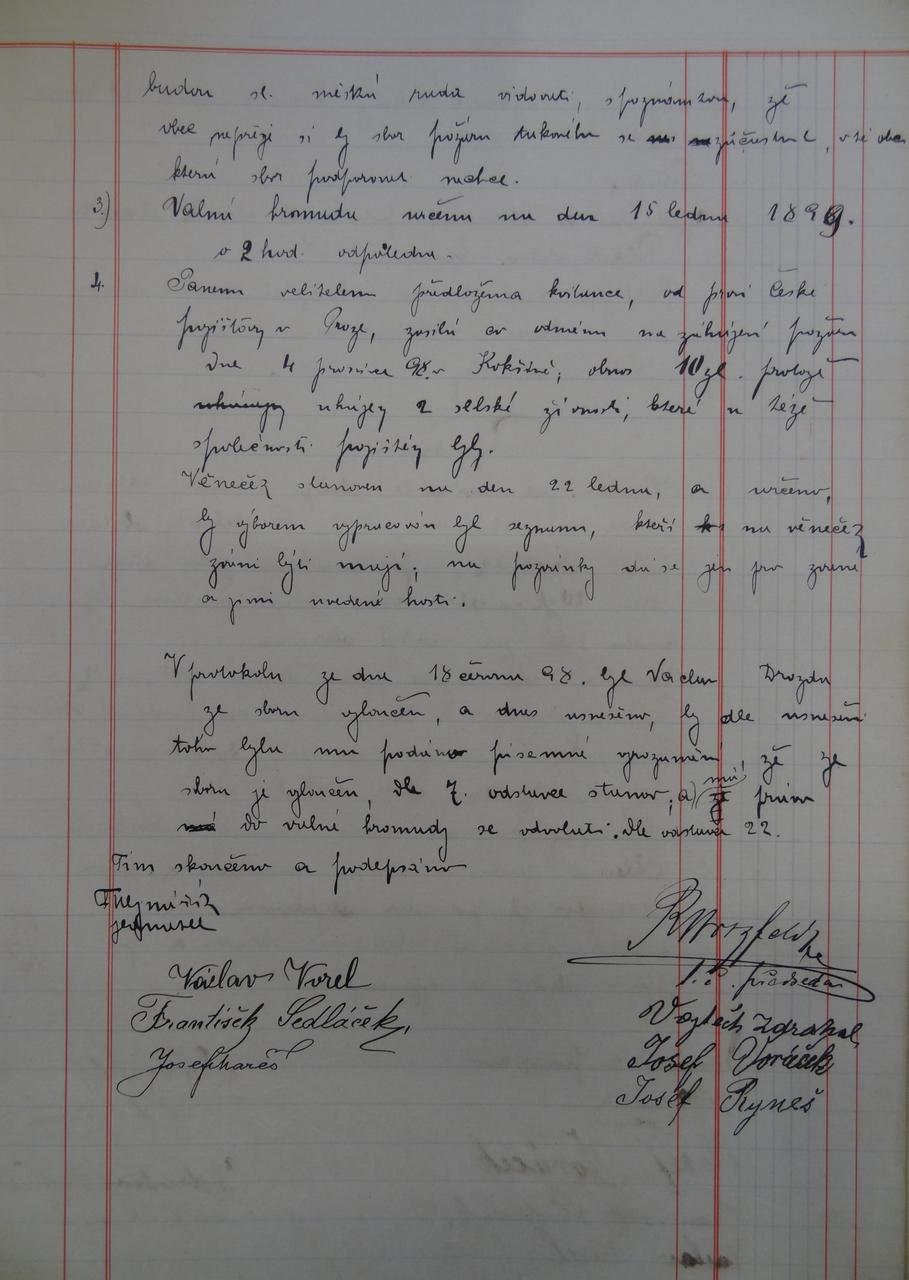 budou sl. městká rada vidovati, s poznámkou, zě
obec nepřeje si by sbor požáru takového se zúčastnil, v té obci
kterú sbor podporovat nechce.
3.) Valnú hromada určena na den 15 ledna 1899.
o 2 hod. odpoledne.
4. Panem velitelem předložena kvitance, od první České
pojišťovny v Praze, zasílá co odměnu na zahájení požáru
dne 4 prosince 98. v Kokšíně; obnos 10 zl. protozě
uhájeny 2 selské živnosti, které u tézě
společnosti pojištěny byly.
Věneček stanoven na den 22 ledna, a určeno,
by výborem vypracován byl seznam, kteří na věneček
zváni býti mají; na pozvánky dá se jen pro zvané
a jimi uvedené hosti.
V protokolu ze dne 18 června 98. byl Vaclav Drozda
ze sboru vyloučen, a dnes usnešeno, by dle usnešení
toho bylo mu podáno písemné vyrozumění, zě ze
sboru je vyloučen, dle 7. odstavce stanov; a) má právo
do valné hromady se odvolati. dle odstavce 22.
Tím skončeno a podepsáno
jednatel
Václav Vorel
František Sedláček,
Josef Kareš
t.č. předseda
Vojtěch Zdrahal
Josef Voráček
Josef Ryneš